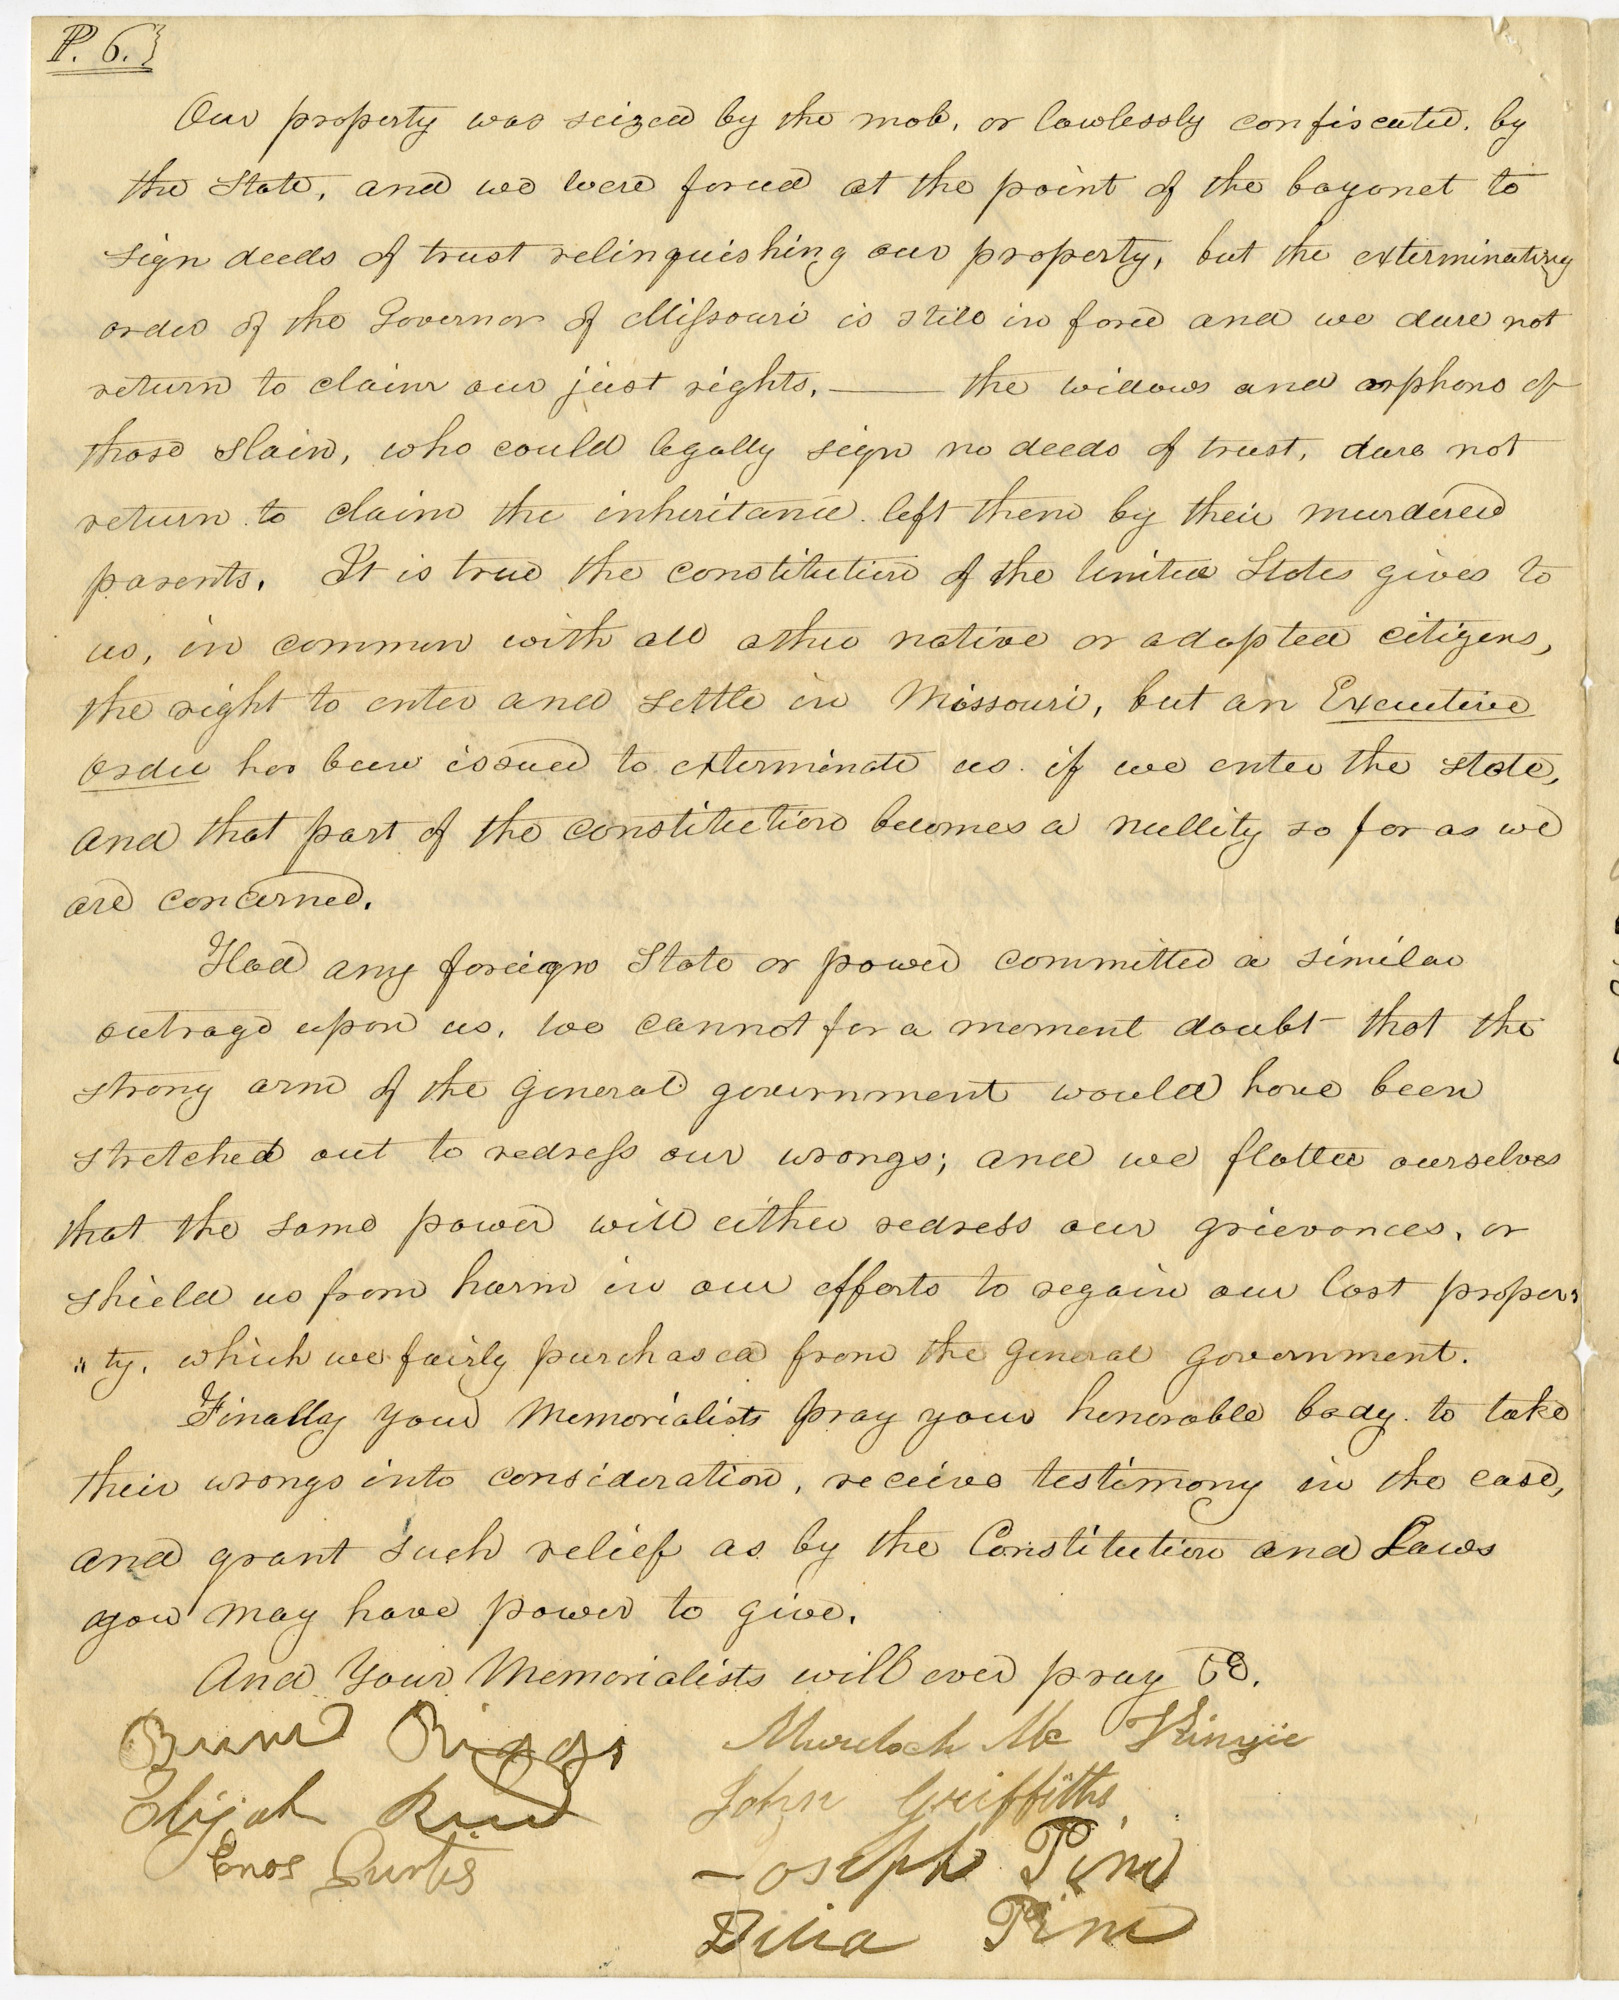 P. 6.}
Our property was seized by the mob, or lawlessly confiscated, by
the State, and we were forced at the point of the bayonet to
sign deeds of trust relinquishing our property, but the exterminating
order of the Governor of Missouri is still in force and we dare not
return to claim our just rights.—— the widows and orphans of
those slain, who could legally sign no deeds of trust, dare not
return to claim the inheritance left them by their murdered
parents. It is true the constitution of the United States gives to
us, in common with all other native or adopted citizens,
the right to enter and settle in Missouri, but an Executive
order has been issued to exterminate us if we enter the state,
and that part of the constitution becomes a nullity so far as we
are concerned.
Had any foreign State or power committed a similar
outrage upon us, we cannot for a moment doubt that the
strong arm of the General government would have been
stretched out to redress our wrongs; and we flatter ourselves
that the same power will either redress our grievances, or
shield us from harm in our efforts to regain our lost proper"
"ty, which we fairly purchased from the General government.
Finally your Memorialists pray your honorable body to take
their wrongs into consideration, receive testimony in the case,
and grant such relief as by the Constitution and Laws
you may have power to give.
And Your Memorialists will ever pray &c.
Riggs Murdoch Mc Kinzie
Elijah Reed John Griffiths
Enos Curtis Joseph Pine
Pine